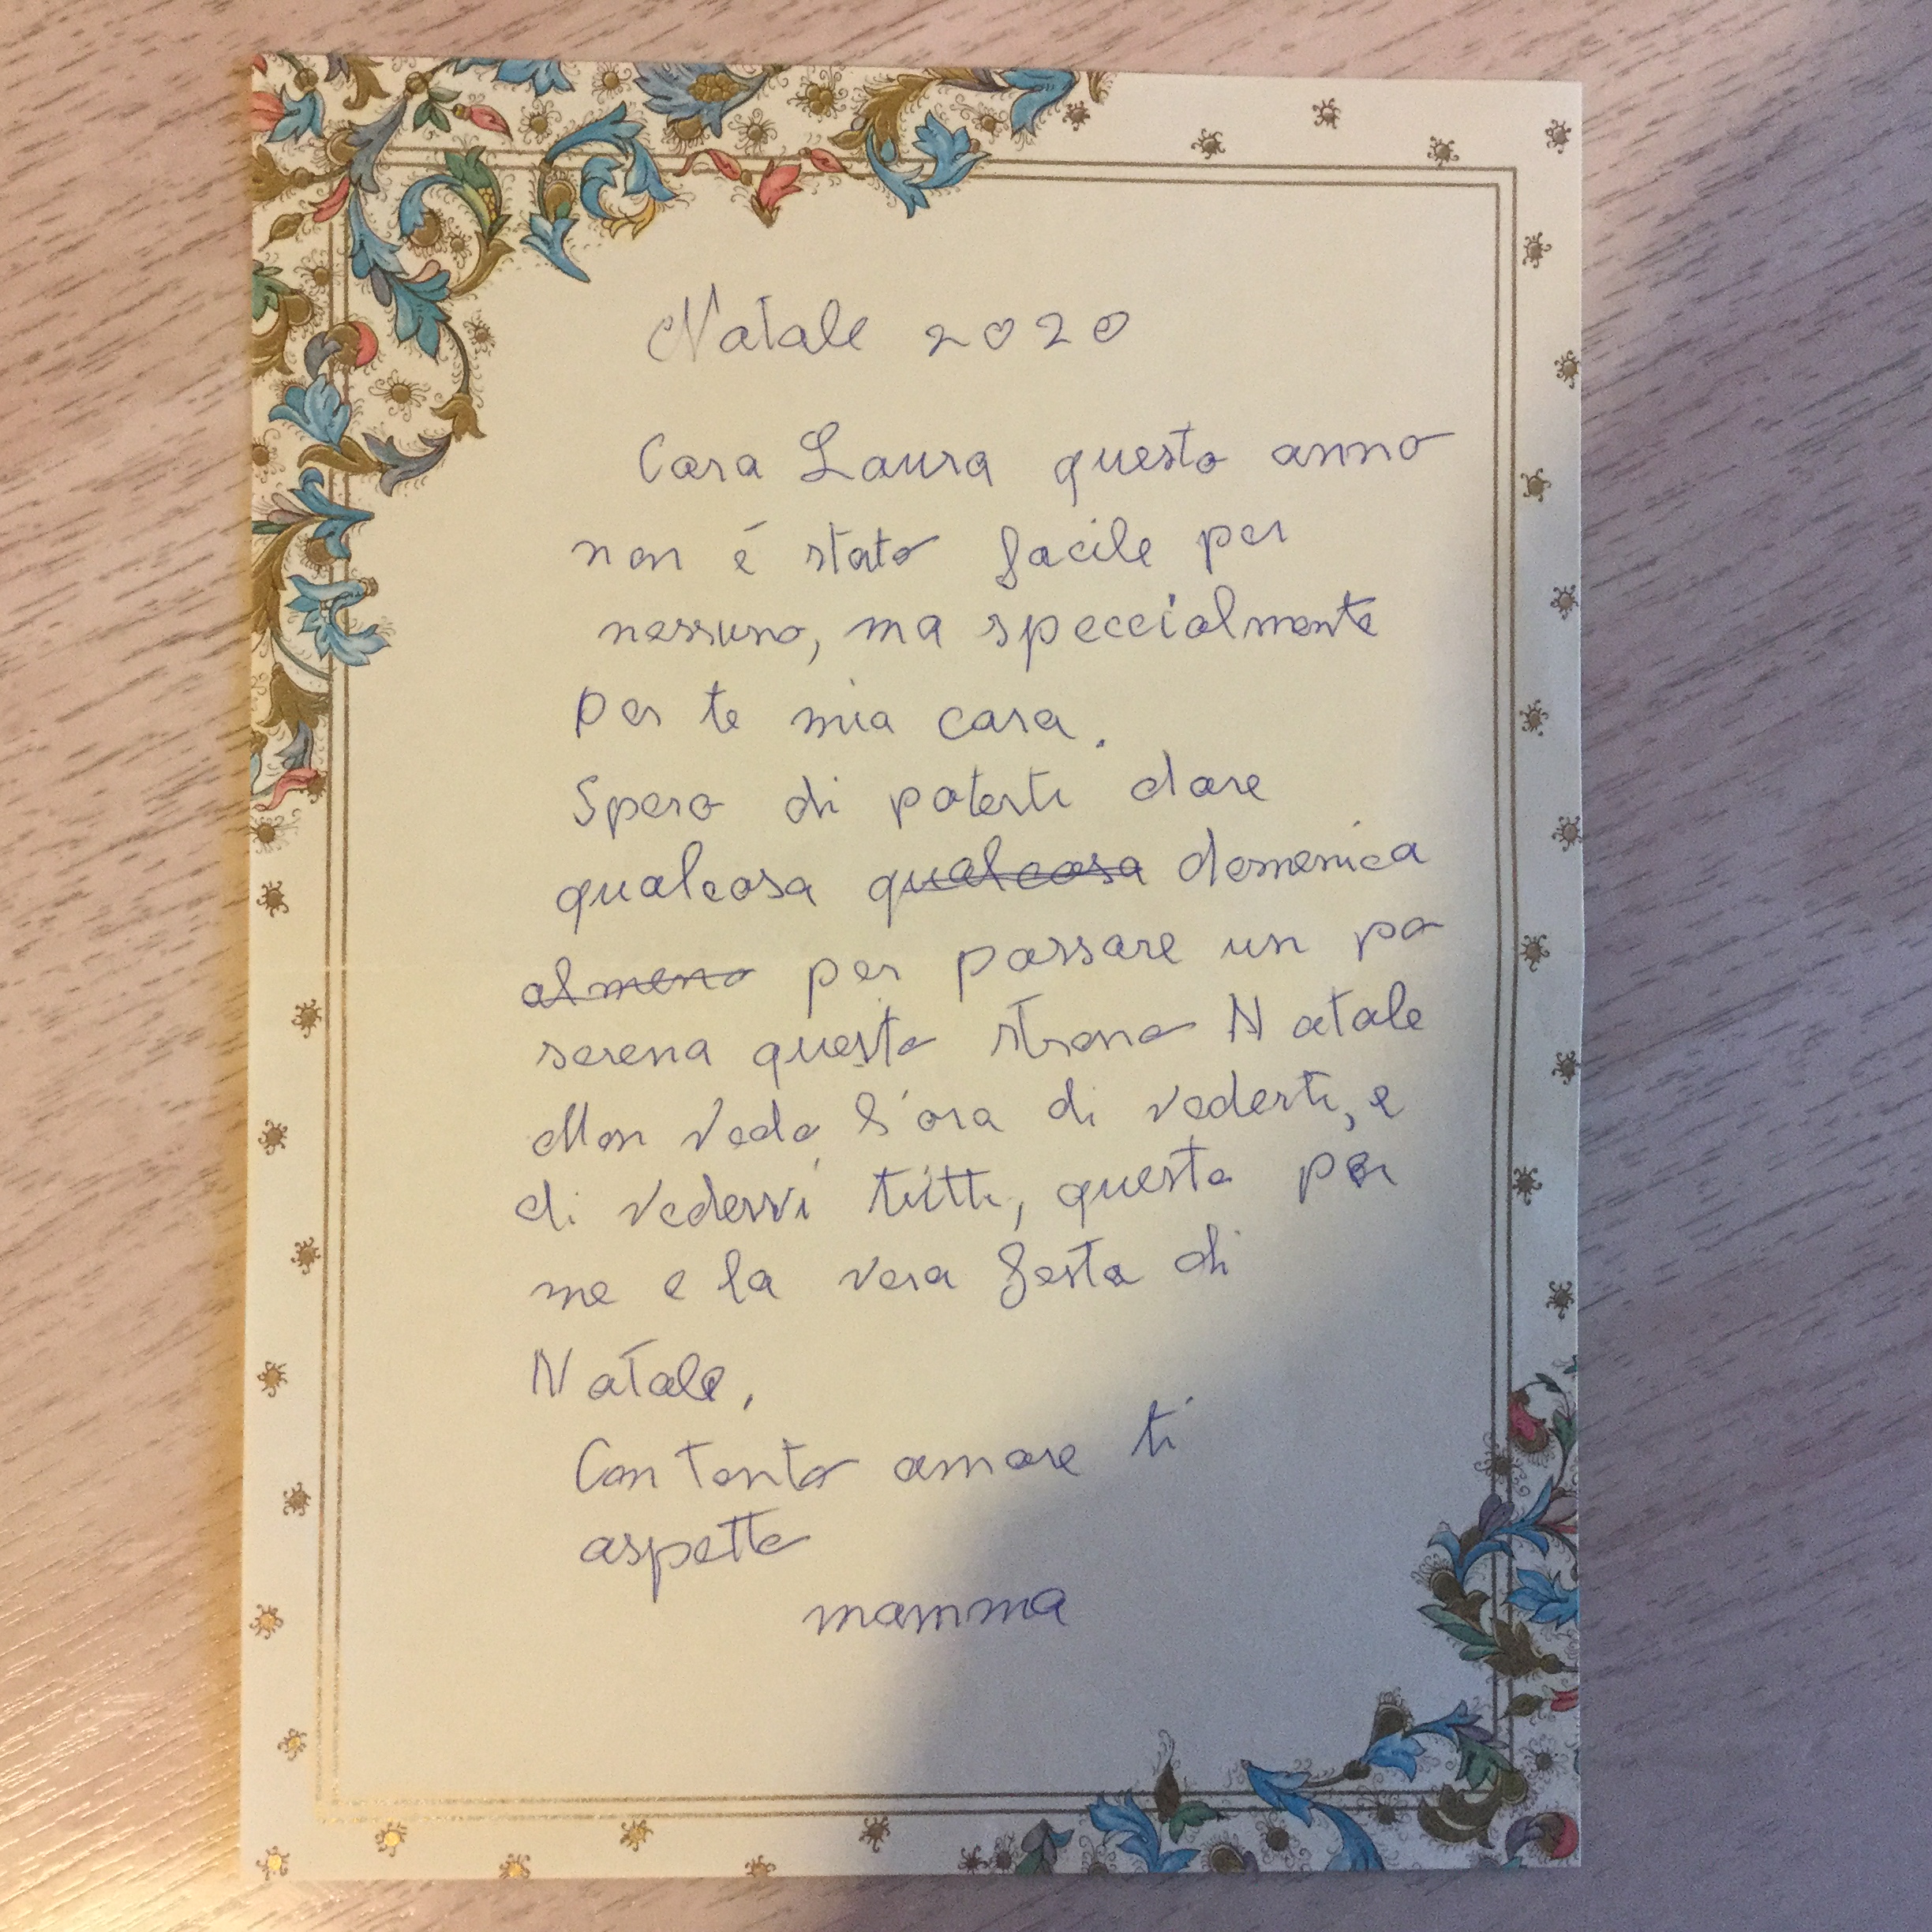 Natale 2020
Cara Laura questo anno
non é stato facile per
nessuno, ma speccialmente
per te mia cara.
Spero di poterti dare
qualcosa qualcosa domenica
almeno per passare un po
serena questo strano Natale
Non vedo l'ora di vederti, e
di vedervi tutti, questa per
me e la vera festa di
Natale,
Con tanto amore ti
aspetto
mamma